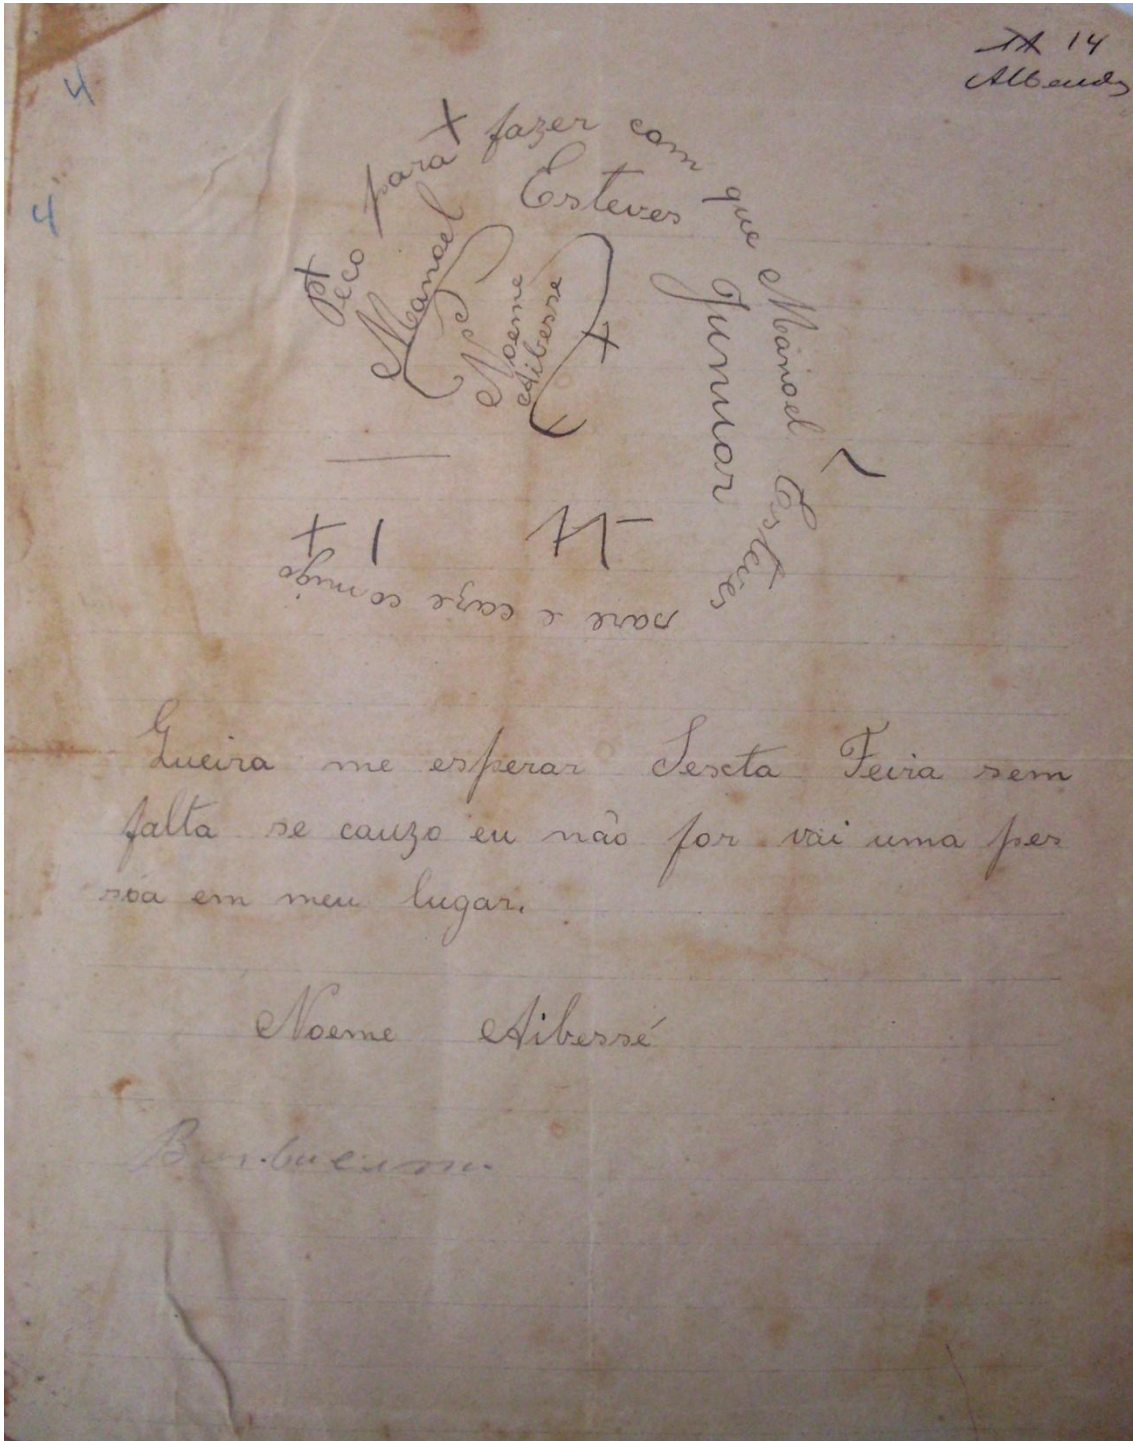 14
4
4
Peco para fazer com que Manoel Esteves
sare e caze comigo
Manoel
Esteves
Junuor
Noeme
Aibessé
Queira me esperar Sexta Feira sem
falta se cauzo eu não for vai uma pes
sôa em meu lugar.
Noeme Aibessé